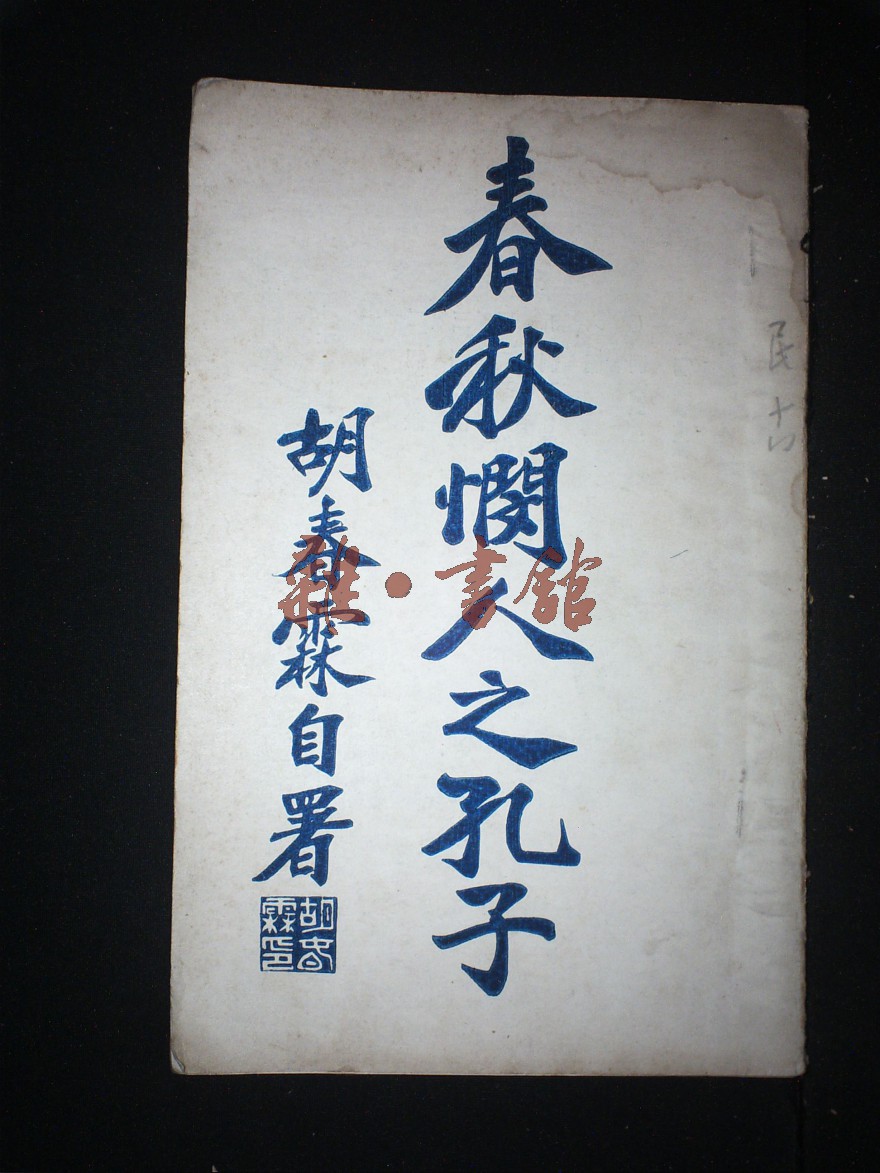 民十
春秋憫人之孔子
胡春霖自署
胡春霖印
雜·書館